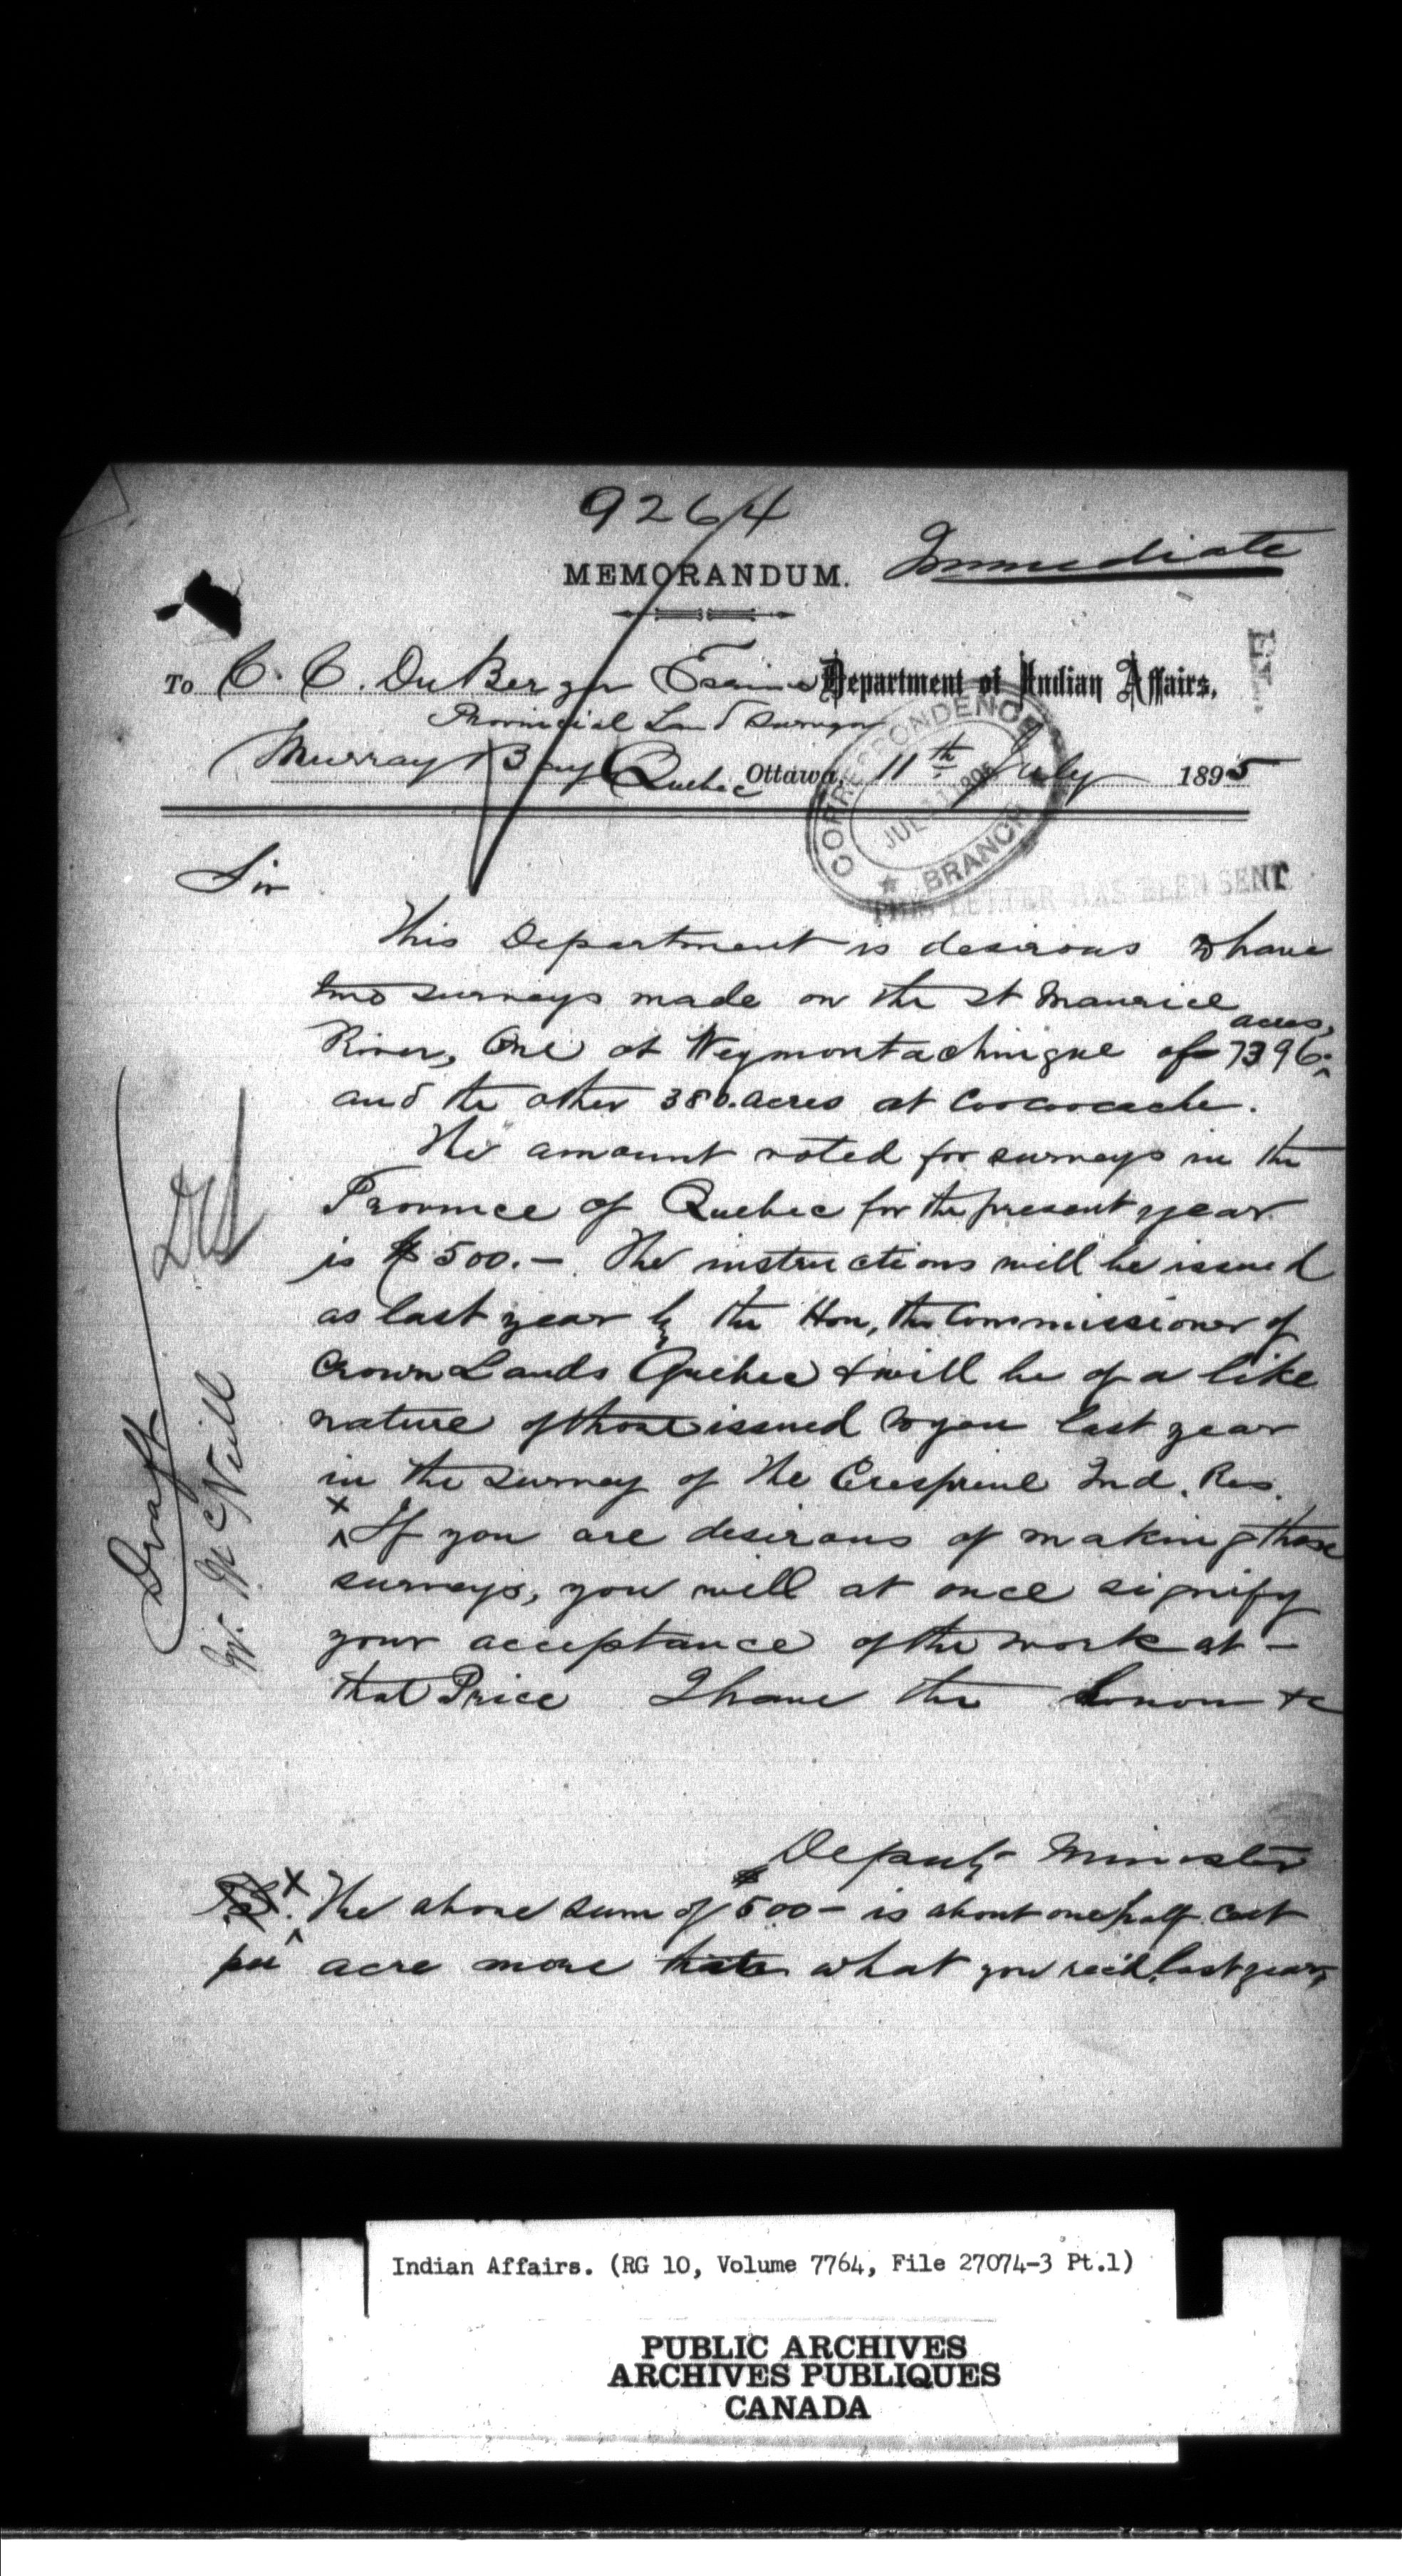 9264
Immediate
MEMORANDUM.
To C. C. DuBerger Esquire Department of Indian Affairs,
Provincial Land Surveyor
Murray Bay Quebec Ottawa, 11th July 1895
CORRESPONDENCE
JUL 11 1895
BRANCH
THIS LETTER HAS BEEN SENT
Sir
This Department is desirous to have
two surveys made on the St Maurice
River, One at Weymontachingue of 7396 acres,
and the other 380. acres at Coocoocache.
The amount voted for surveys in the
Province of Quebec for the present year
is $500.— The instructions will be issued
as last year by the Hon, the Commissioner of
Crown Lands Quebec & will be of a like
nature of those issued to you last year
in the survey of the Ind. Res.
x If you are desirous of making these
surveys, you will at once signify
your acceptance of the work at —
that Price I have the honour &c
Deputy Minister
x The above sum of $500— is about one half cent
per acre more what you rec'd. last year,
Draft
W. McNeill
Indian Affairs. (RG 10, Volume 7764, File 27074-3 Pt.1)
PUBLIC ARCHIVES
ARCHIVES PUBLIQUES
CANADA